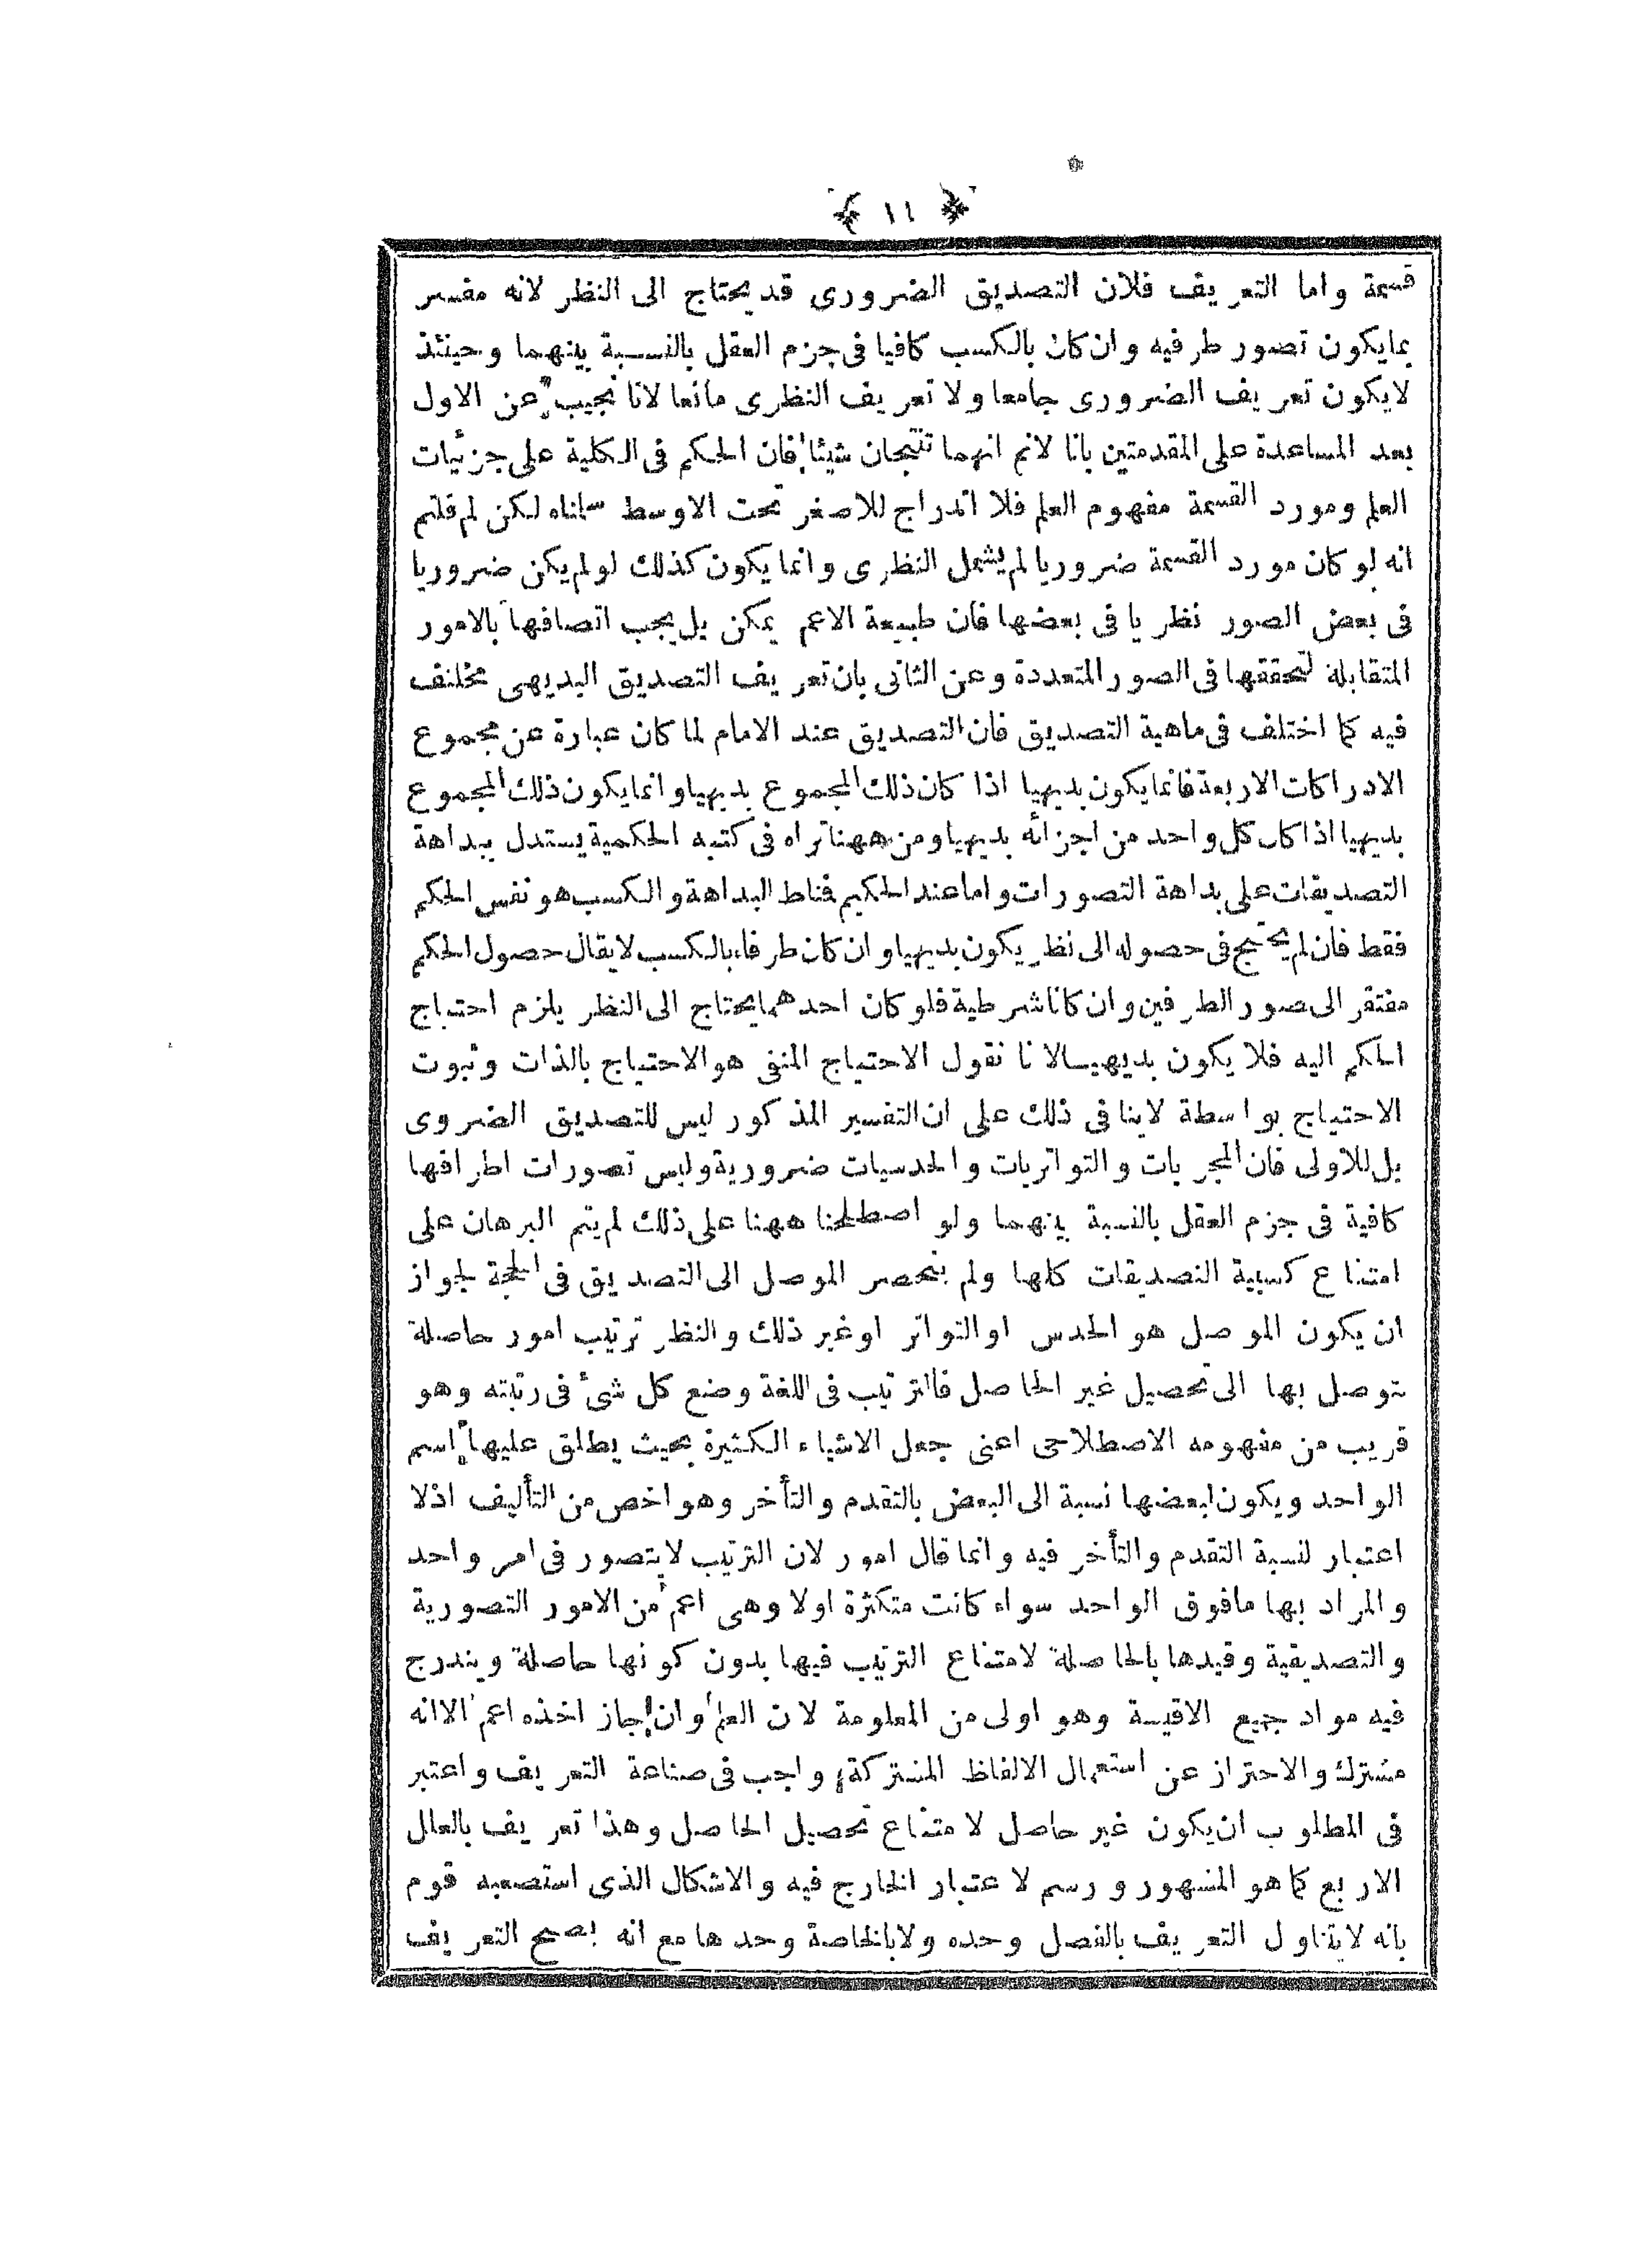 ﴿ ١١ ﴾
قسمة واما التعريف فلان التصديق الضرورى قد يحتاج الى النظر لانه مفسر
بمايكون تصور طرفيه وان كان بالكسب كافيا فى جزم العقل بالنسبة بينهما وحينئذ
لايكون تعريف الضرورى جامعا ولا تعريف النظرى مانعا لانا نجيب عن الاول
بعد المساعدة على المقدمتين بانا لانم انهما تنتجان شيئا فان الحكم فى الكلية على جزئيات
العلم ومورد القسمة مفهوم العلم فلا اندراج للاصغر تحت الاوسط سلمناه لكن لم قلتم
انه لو كان مورد القسمة ضروريا لم يشمل النظرى وانما يكون كذلك لو لم يكن ضروريا
فى بعض الصور نظريا فى بعضها فان طبيعة الاعم يمكن بل يجب اتصافها بالامور
المتقابلة لتحققها فى الصور المتعددة وعن الثانى بان تعريف التصديق البديهى مختلف
فيه كما اختلف فى ماهية التصديق فان التصديق عند الامام لما كان عبارة عن مجموع
الادراكات الاربعة فانما يكون بديهيا اذا كان ذلك المجموع بديهيا وانما يكون ذلك المجموع
بديهيا اذا كان كل واحد من اجزائه بديهيا ومن ههنا تراه فى كتبه الحكمية يستدل ببداهة
التصديقات على بداهة التصورات واما عند الحكيم فناط البداهة والكسب هو نفس الحكم
فقط فان لم يحتج فى حصوله الى نظر يكون بديهيا وان كان طرفاه بالكسب لا يقال حصول الحكم
مفتقر الى صور الطرفين وان كانا شرطية فلو كان احدهما يحتاج الى النظر يلزم احتياج
الحكم اليه فلا يكون بديهيا لانا نقول الاحتياج المنفى هو الاحتياج بالذات وثبوت
الاحتياج بواسطة لاينافى ذلك على ان التفسير المذكور ليس للتصديق الضروى
بل للاولى فان المجربات والتواتريات والحدسيات ضرورية وليس تصورات اطرافها
كافية فى جزم العقل بالنسبة بينهما ولو اصطلحنا ههنا على ذلك لم يتم البرهان على
امتناع كسبية التصديقات كلها ولم ينحصر الموصل الى التصديق فى الحجة لجواز
ان يكون الموصل هو الحدس او التواتر او غير ذلك والنظر ترتيب امور حاصلة
يتوصل بها الى تحصيل غير الحاصل فالترتيب فى اللغة وضع كل شئ فى رتبته وهو
قريب من مفهومه الاصطلاحى اعنى جعل الاشياء الكثيرة بحيث يطلق عليها اسم
الواحد ويكون لبعضها نسبة الى البعض بالتقدم والتأخر وهو اخص من التأليف اذلا
اعتبار لنسبة التقدم والتأخر فيه وانما قال امور لان الترتيب لايتصور فى امر واحد
والمراد بها مافوق الواحد سواء كانت متكثرة اولا وهى اعم من الامور التصورية
والتصديقية وقيدها بالحاصلة لامتناع الترتيب فيها بدون كونها حاصلة ويندرج
فيه مواد جميع الاقيسة وهو اولى من المعلومة لان العلم وان جاز اخذه اعم الاانه
مشترك والاحتراز عن استعمال الالفاظ المشتركة واجب فى صناعة التعريف واعتبر
فى المطلوب ان يكون غير حاصل لامتناع تحصيل الحاصل وهذا تعريف بالعلل
الاربع كما هو المشهور ورسم لاعتبار الخارج فيه والاشكال الذى استصعبه قوم
بانه لايتناول التعريف بالفصل وحده ولابالخاصة وحدها مع انه يصح التعريف